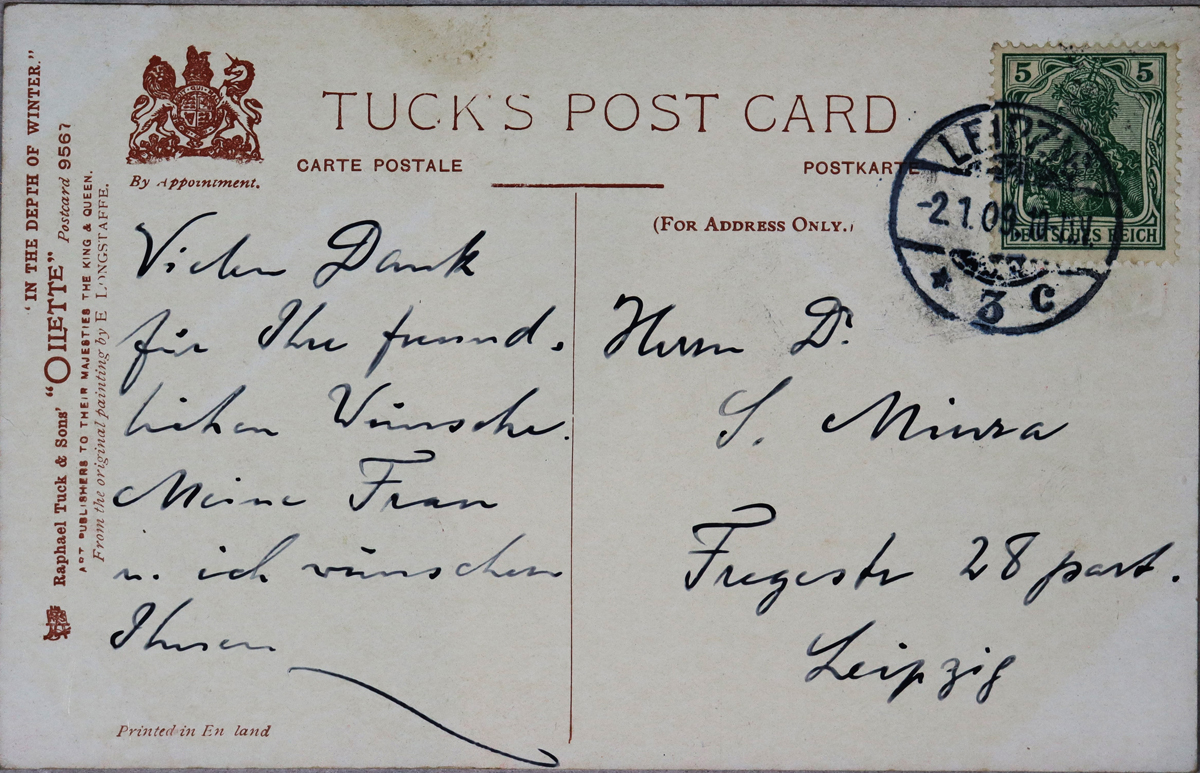 "IN THE DEPTH OF WINTER."
Raphael Tuck & Sons' "OILETTE" Postcard 9567
ART PUBLISHERS TO THEIR MAJESTIES THE KING & QUEEN.
From the original painting by E LONGSTAFFE.
By Appointment.
TUCK'S POST CARD
CARTE POSTALE
POSTKARTE
(FOR ADDRESS ONLY.)
5 5
DEUTSCHES REICH
LEIPZIG
-2.1.09.10-11V.
* 3 c
Vielen Dank
für Ihre freund-
lichen Wünsche.
Meine Frau
u. ich wünschen
Ihnen
Herrn Dr.
S. Miura
Fregestr 28 part.
Leipzig
Printed in En land